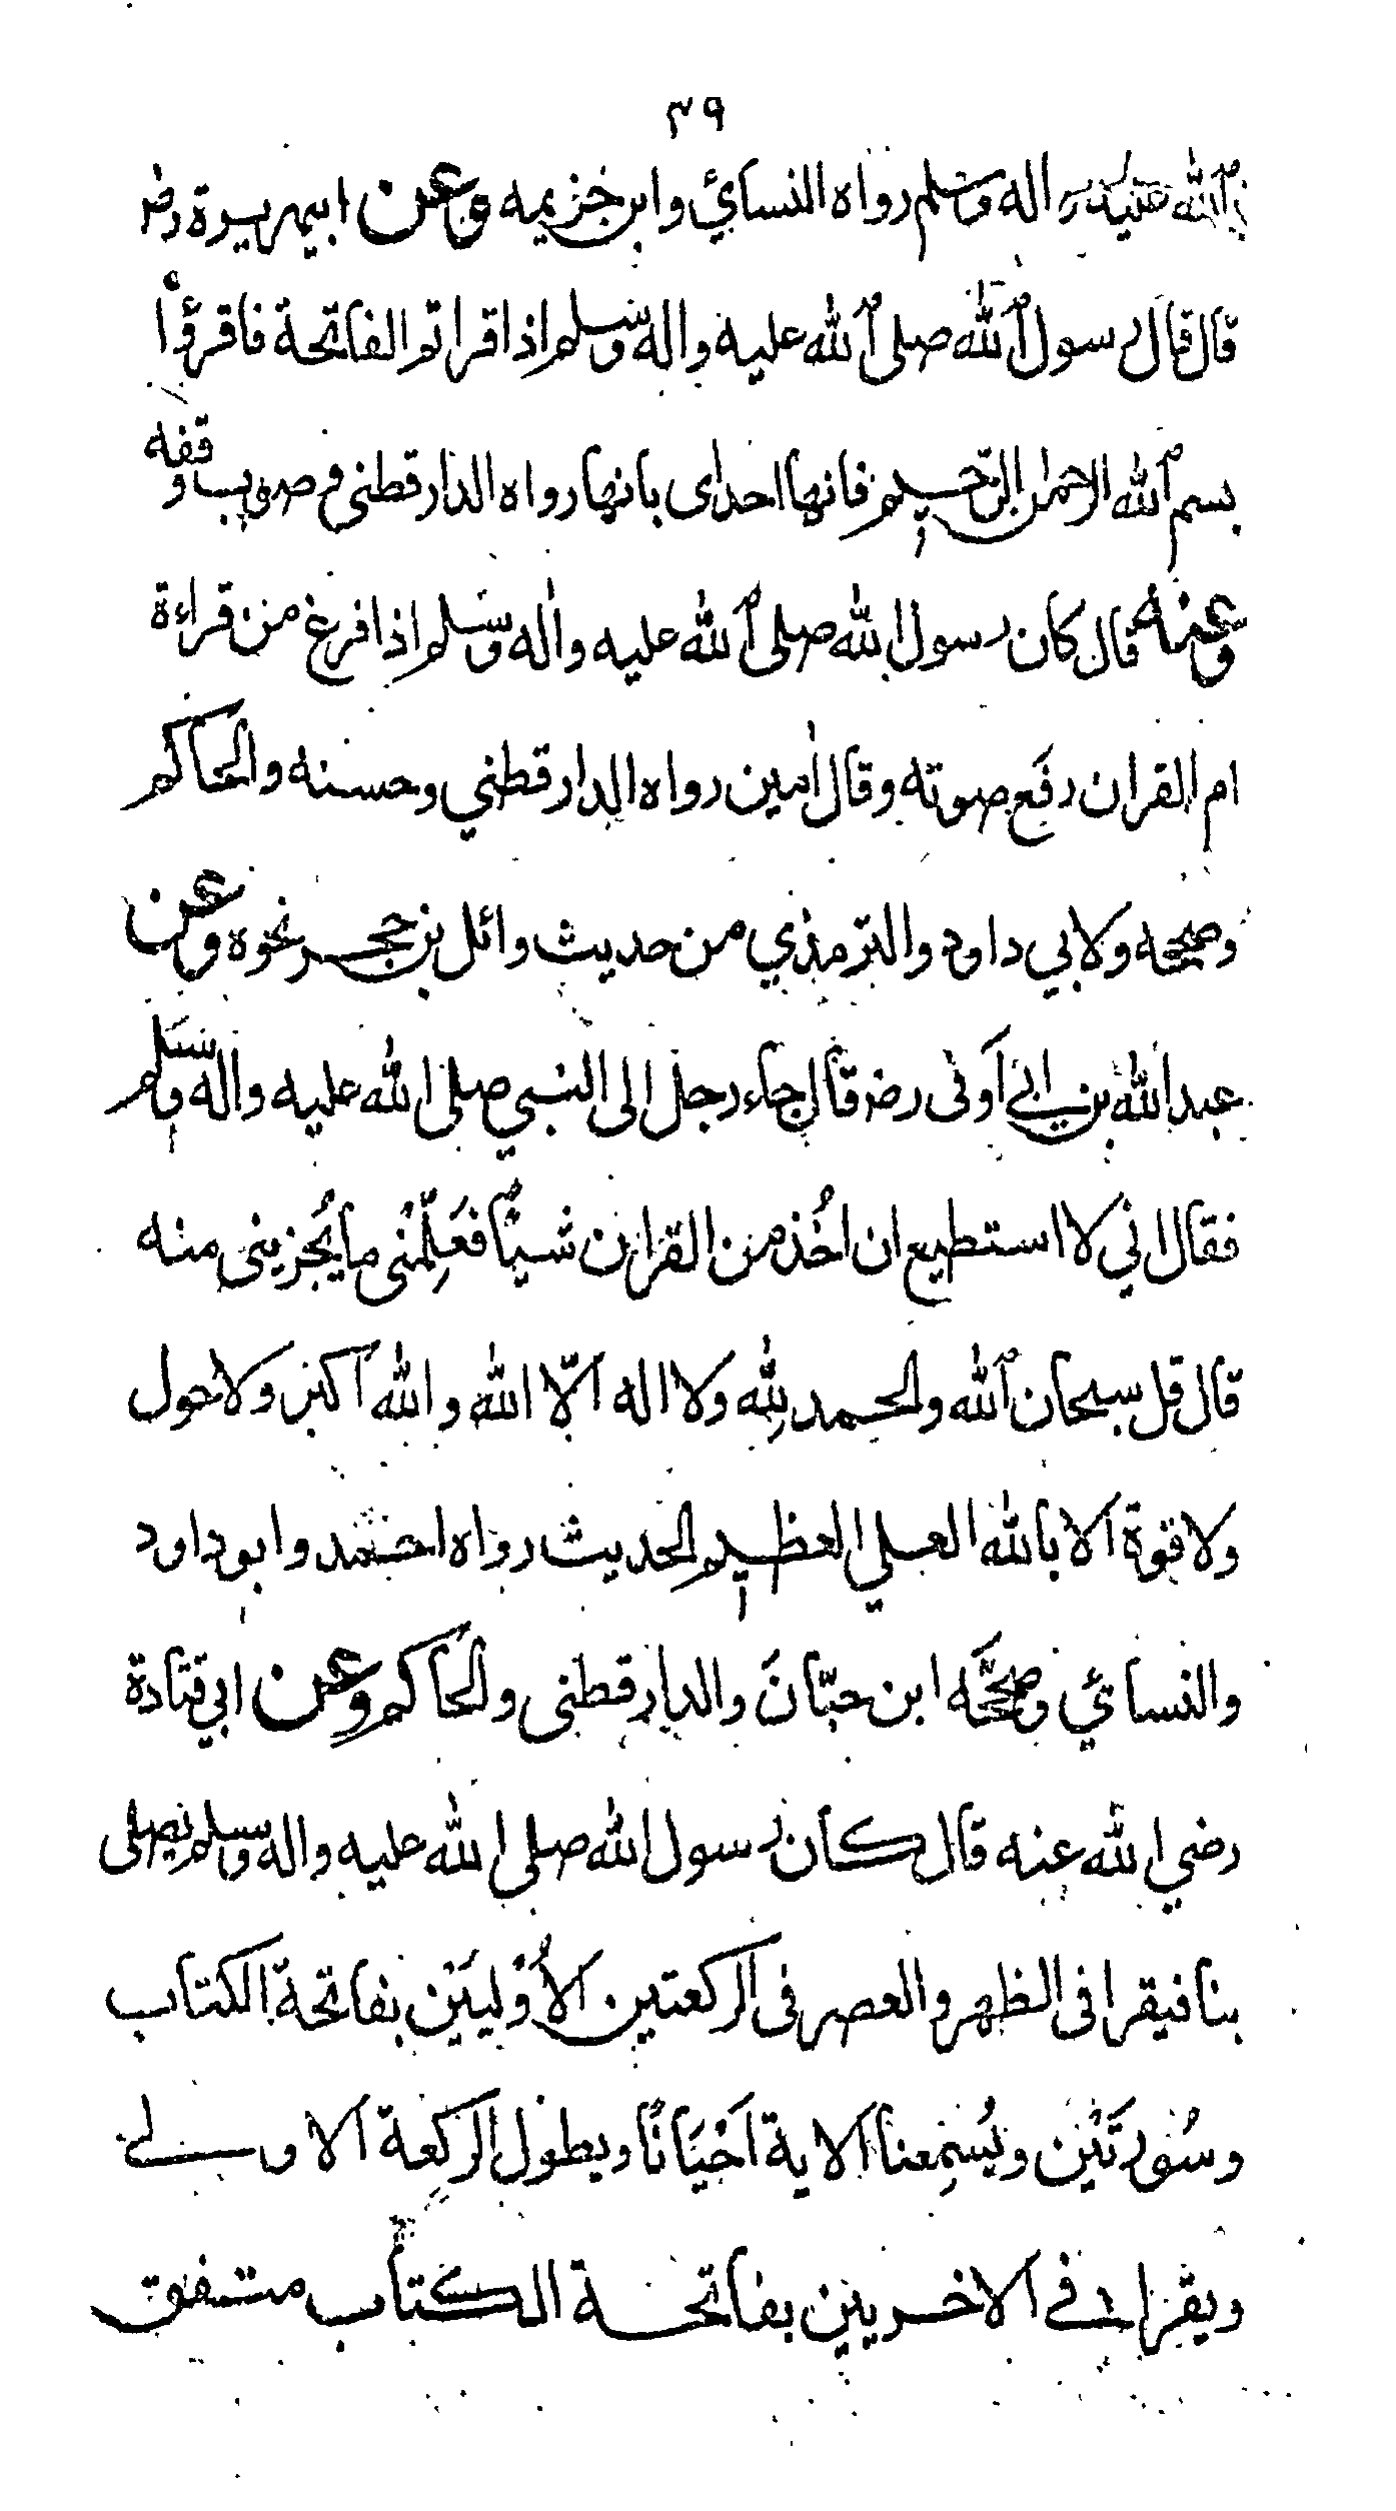 ٣٩
الله عليه واله وسلم رواه النسائي وابن خزيمه وعن ابيهريرة رض
قال قال رسول الله صلى الله عليه واله وسلم اذا قراتم الفاتحة فاقرؤا
بسم الله الرحمن الرحيم فانها احدى باتها رواه الدارقطني وصوب وقفه
وعنه قال كان رسول الله صلى الله عليه واله وسلم اذا فرغ من قراءة
ام القران رفع صوته وقال امين رواه الدارقطني وحسنه والحاكم
وصححه ولابي داود والترمذي من حديث وائل بن حجر نحوه وعن
عبد الله بن ابي اوفى رض قال جاء رجل الى النبي صلى الله عليه واله وسلم
فقال اني لا استطيع ان اخُذ من القران شيئًا فعَلِّمْنى ما يُجزينى منه
قال قل سبحان الله والحمد لله ولا اله الّا الله والله اكبر ولا حول
ولا قوة الا بالله العلي العظيم الحديث رواه احمد وابو داود
والنسائي وصحّحَه ابن حبّانَ والدارقطنى والحاكم وعن ابي قتادة
رضي الله عنه قال كان رسول الله صلى الله عليه واله وسلم يصلى
بنا فيقرا فى الظهر والعصر فى الركعتين الأُوْليَيْن بفاتحة الكتاب
وسُورتَيْن ويُسْمِعنا الاية اَحْيَانًا ويطول الركعة الاولى
ويقرا في الاخريين بفاتحة الكتاب متفق